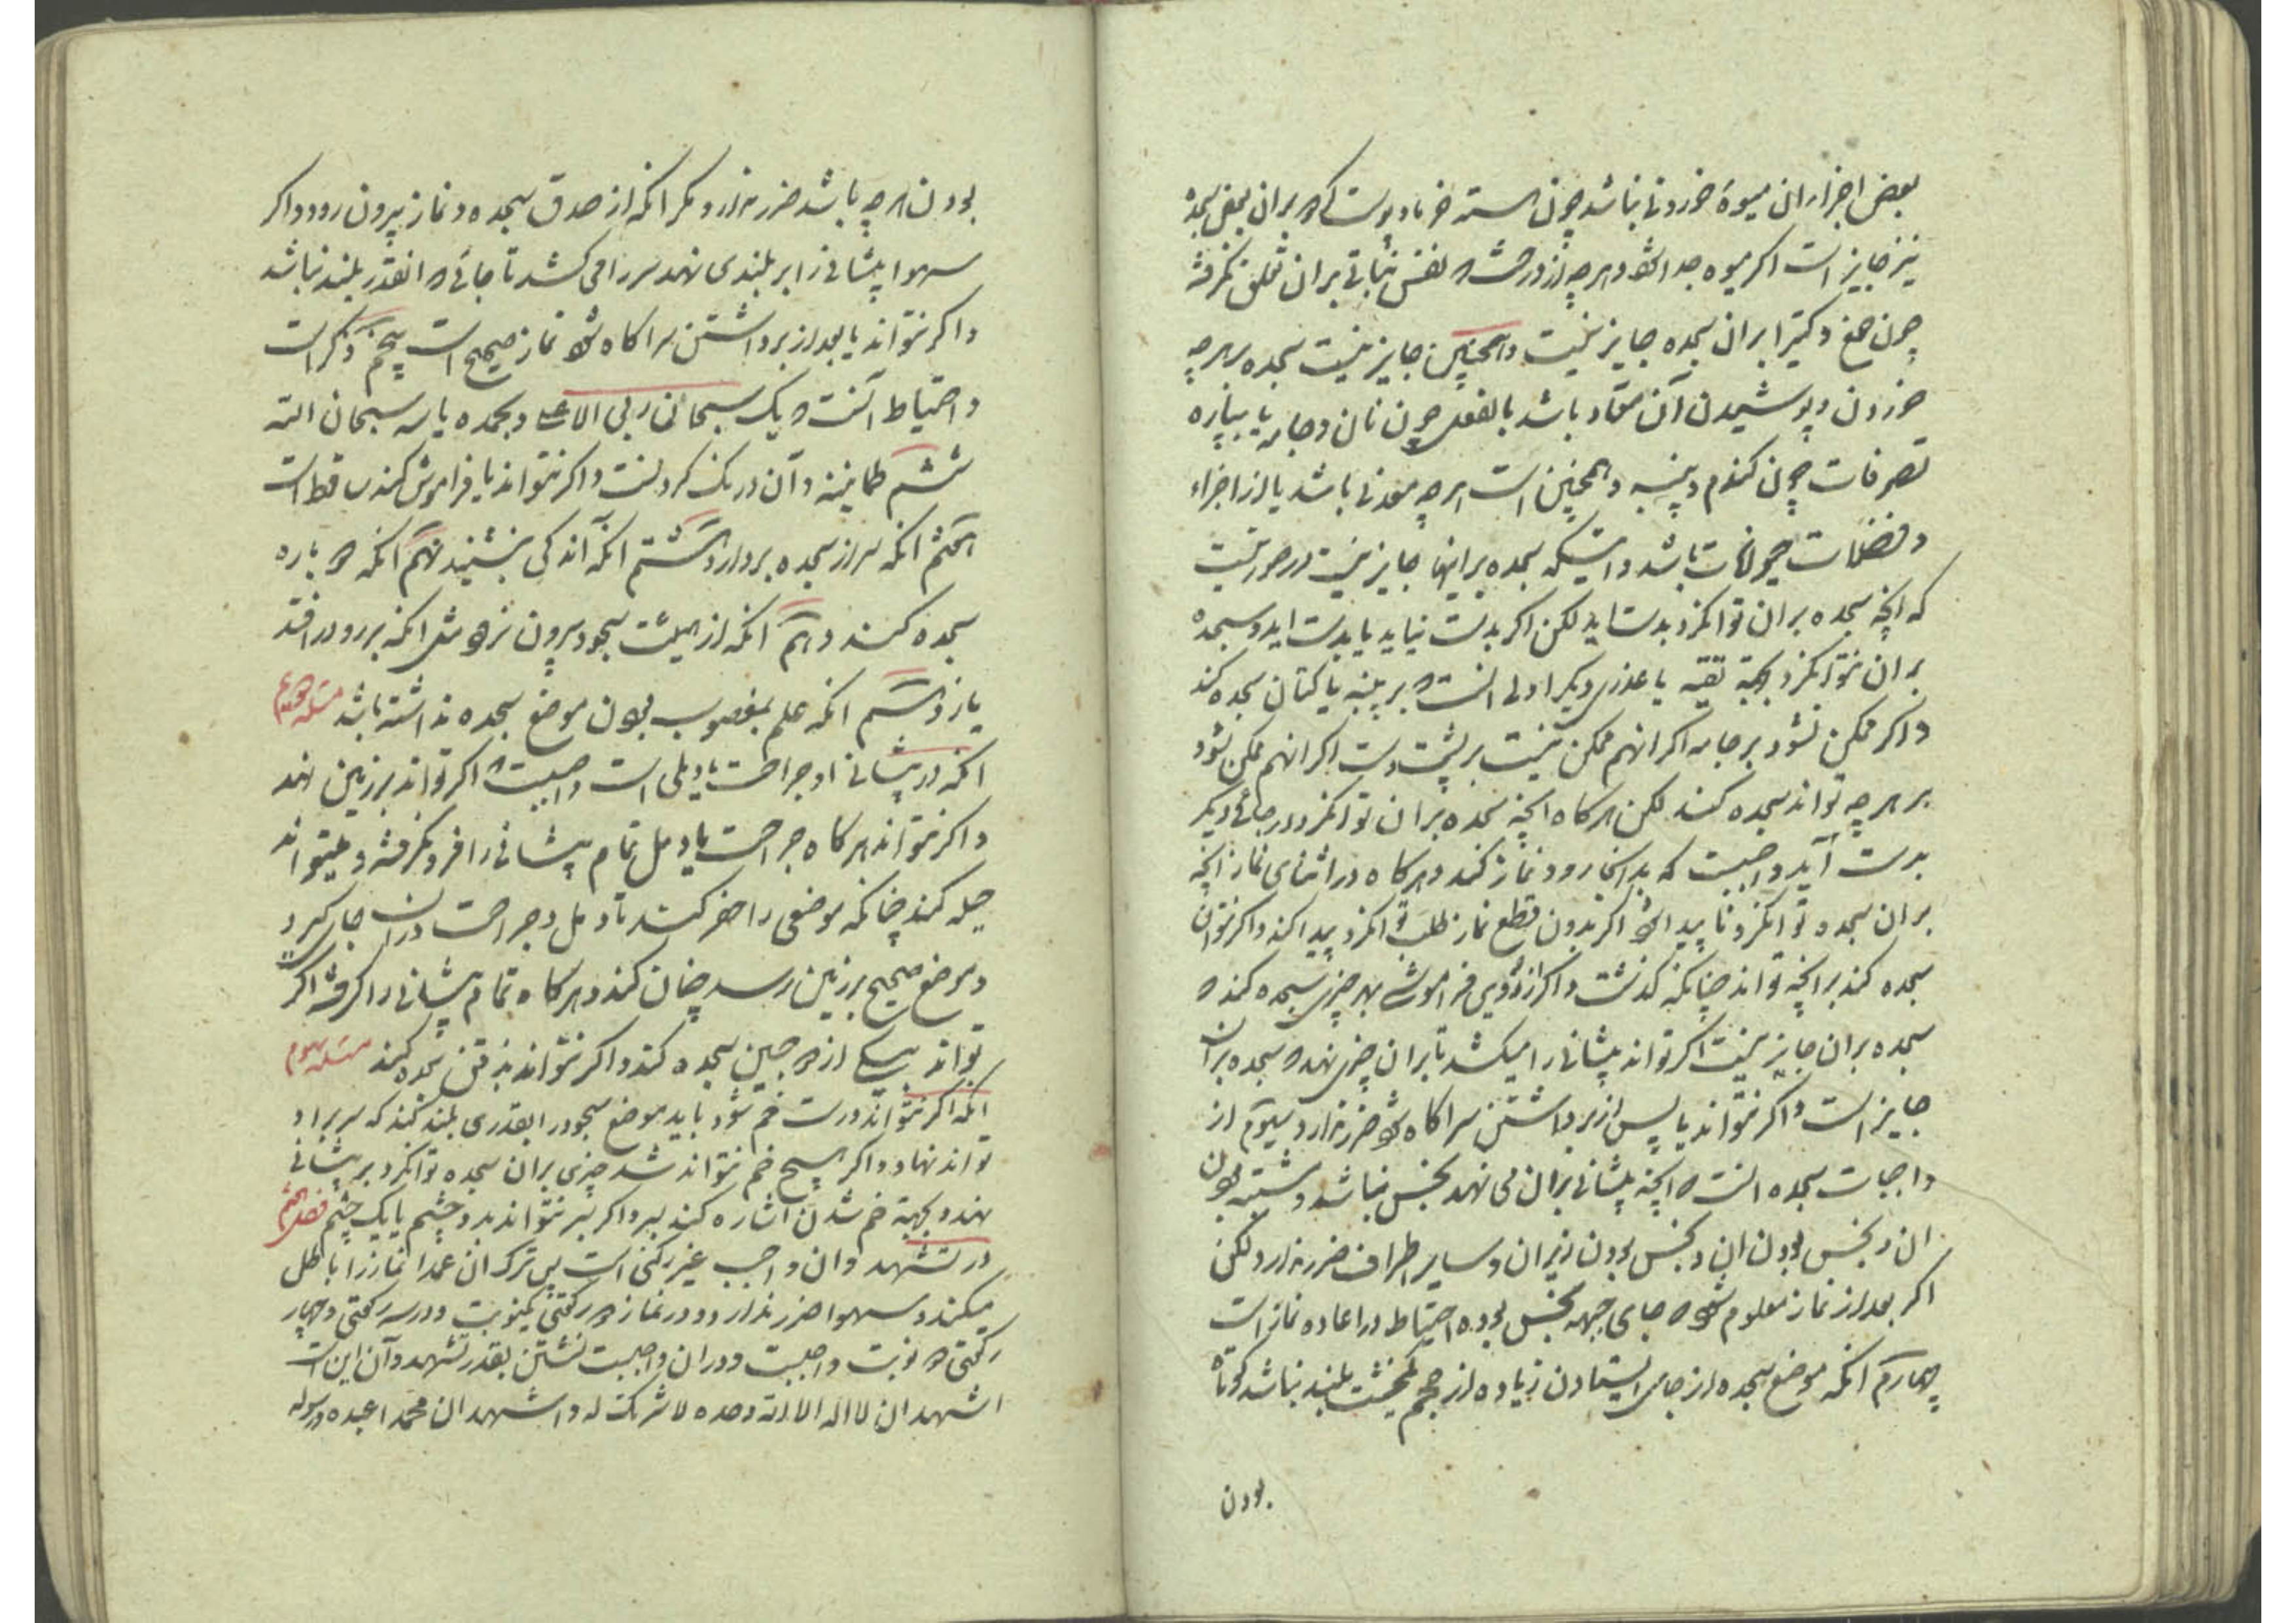 بعض اجزاء ان میوهٔ خوردنی نباشد چون هسته خرما و پوست که بران بعض سجده
نیز جایز است اگر میوه جدا شود و هر چه از درخت که نفس نباتی بران تعلق نگرفته
چون صمغ و کتیرا بران سجده جایز نیست و همچنین جایز نیست سجده بر هر چه
خوردن و پوشیدن آن معتاد باشد بالفعل چون نان و جامه یا بپاره
تصرفات چون کندم و پنبه و همچنین است هر چه معدنی باشد یا از اجزاء
و فضلات حیوانات باشد و اینکه سجده بر اینها جایز نیست در صورتیست
که انچه سجده بران توانکرد بدست اید لکن اگر بدست نیاید یا بدست اید و سجده
بران نتوانکرد بجهة تقیه یا عذری دیکر اولی انست که بر پنبه یا کتان سجده کند
و اکر ممکن نشود بر جامه اکر انهم ممکن نیست بر پشت دست اکر انهم ممکن نشود
بر هر چه تواند سجده کند لکن هر کاه انچه سجده بران توانکرد در جائی دیکر
بدست آید واجبست که بدانجا رود و نماز کند و هر کاه در اثنای نماز انچه
بران سجده توانکرد نا پیدا شود اکر بدون قطع نماز طلب توانکرد پیدا کند و اکر نتوان
سجده کند بر انچه تواند چنانکه کذشت و اکر از روی فراموشی بهر چیزی سجده کند که
سجده بران جایز نیست اکر تواند پیشانی را میکشد تا بران چیزی نهد که سجده بران
جایز است و اکر نتواند یا پس از برداشتن سر اکاه شود ضرر ندارد سیوم از
واجبات سجده انست که انچه پیشانی بران می نهد نجس نباشد و مشتبه بودن
ان و نجس بودن ان و نجس بودن زیر ان و سایر اطراف ضرر ندارد لکن
اکر بعد از نماز معلوم شود که جای جبهه نجس بوده احتیاط در اعاده نماز است
چهارم انکه موضع سجده از جای ایستادن زیاده از حجم خشت بلند نباشد کوتاه
بودن
بودن هر چه باشد ضرر ندارد مکر انکه از صدق سجده و نماز بیرون رود و اکر
سهوا پیشانی را بر بلندی نهد سر را می کشد تا جائی که انقدر بلند نباشد
و اکر نتواند یا بعد از برداشتن سر اکاه شود نماز صحیح است پنجم ذکر است
و احتیاط آنست که یک سبحان ربی الاعلی و بحمده یا سه سبحان الله
ششم طمانینه و آن درنک کردنست و اکر نتواند یا فراموش کند ساقط است
هفتم انکه سر از سجده بردارد هشتم انکه اندکی بنشیند نهم انکه دو باره
سجده کند دهم انکه از هیئت سجود بیرون نرود مثل انکه بر رو در افتد
یازدهم انکه علم بمغصوب بودن موضع سجده نداشته باشد مسئله
انکه در پیشانی او جراحت یا دملی است واجبست که اکر تواند بر زمین نهد
و اکر نتواند هر کاه جراحت یا دمل تمام پیشانی را فرو نکرفته و میتواند
حیله کند چنانکه موضعی را حفر کند تا دمل و جراحت دران جا کیرد
و موضع صحیح بر زمین رسد چنان کند و هر کاه تمام پیشانی را کرفته اکر
تواند بیکی از دو جبین سجده کند و اکر نتواند بذقن سجده کند مسئله سوم
انکه اکر نتواند درست خم شود باید موضع سجود را بقدری بلند کند که سر بر او
تواند نهاد و اکر هیچ خم نتواند شد چیزی بران سجده توانکرد بر پیشانی
نهد و بجهة خم شدن اشاره کند بسر و اکر بسر نتواند بدو چشم یا یک چشم فصل هشتم
در تشهد و ان واجب غیر رکنی است پس ترک ان عمدا نماز را باطل
میکند و سهوا ضرر ندارد و در نماز دو رکعتی یکنوبت و در سه رکعتی و چهار
رکعتی دو نوبت واجبست و دران واجبست نشستن بقدر تشهد و آن این است
اشهد ان لا اله الا الله وحده لا شریک له و اشهد ان محمدا عبده و رسوله